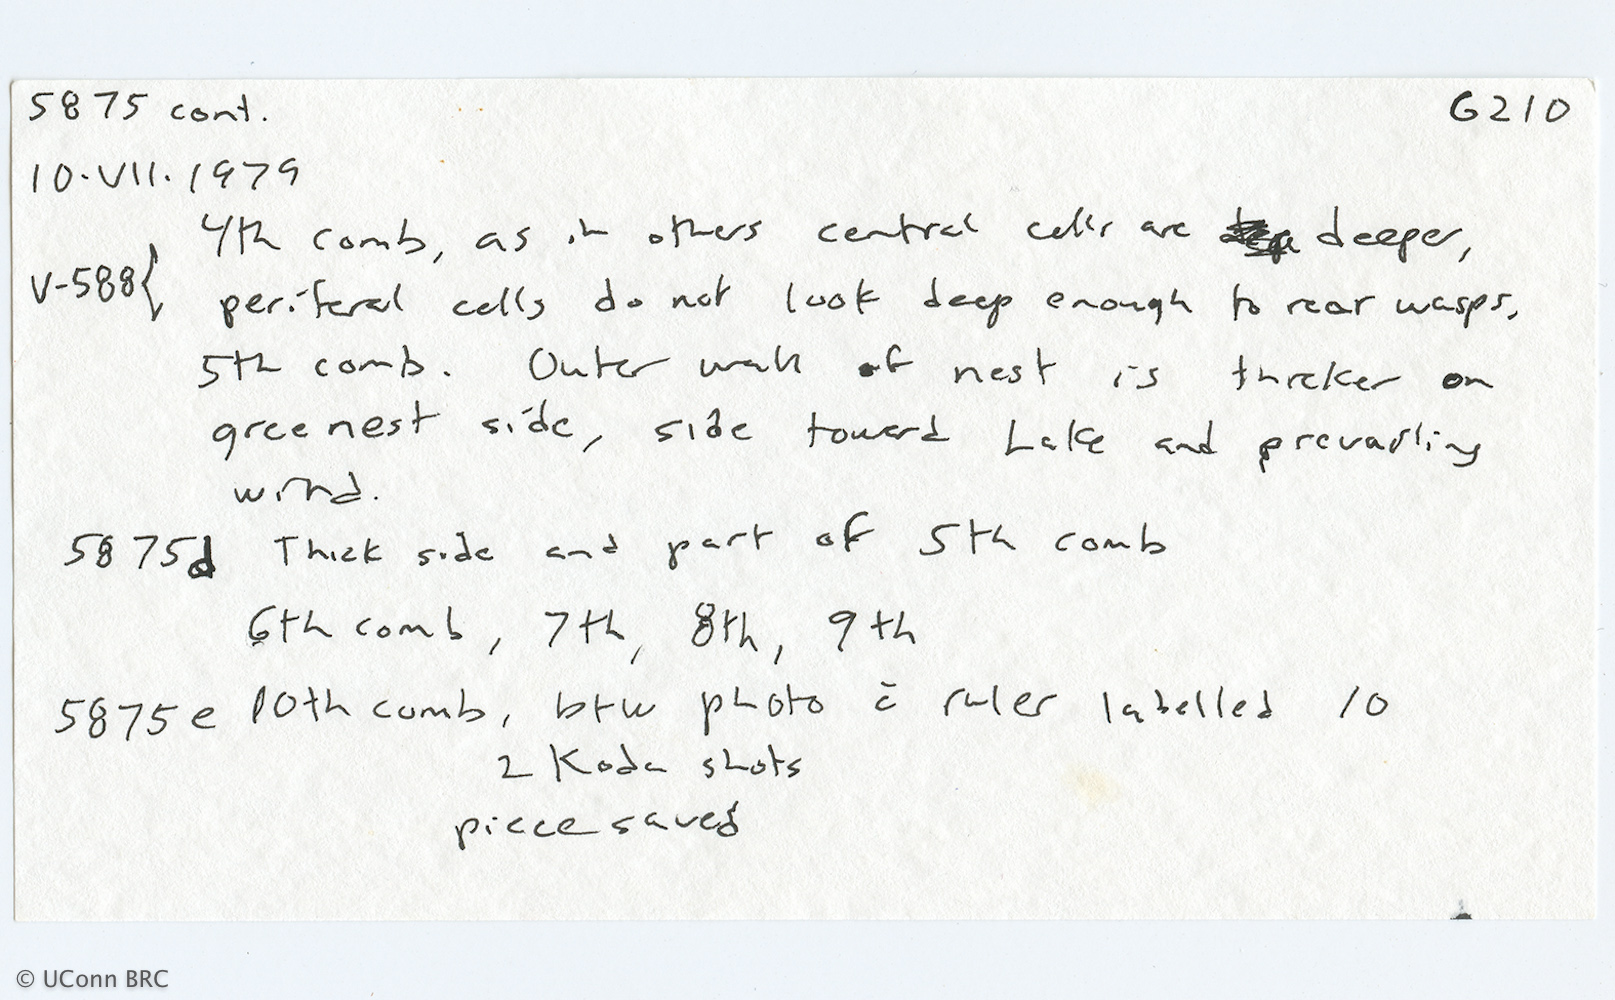 5875 cont. G210
10.VII.1979
4th comb, as in others central cells are deeper,
V-588{ periferal cells do not look deep enough to rear wasps.
5th comb. Outer wall of nest is thicker on
greenest side, side toward Lake and prevailing
wind.
5875d Thick side and part of 5th comb
6th comb, 7th, 8th, 9th
5875e 10th comb, b+w photo c̄ ruler labelled 10
2 Koda shots
piece saved
© UConn BRC